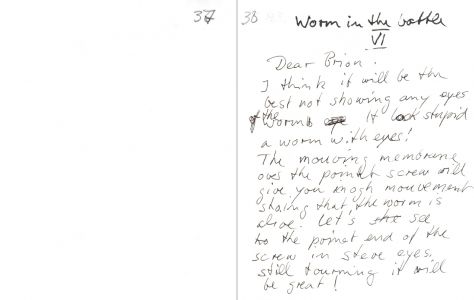 37
38
Worm in the bottle
VI
Dear Brion.
I think it will be the
best not showing any eyes
of the Worm It look stupid
a worm with eyes!
The mouving membrane
over the point screw will
give you enogh mouvement
shoing that the worm is
alive. Let's see
to the point end of the
screw in steve eyes.
still tourning it will
be great!